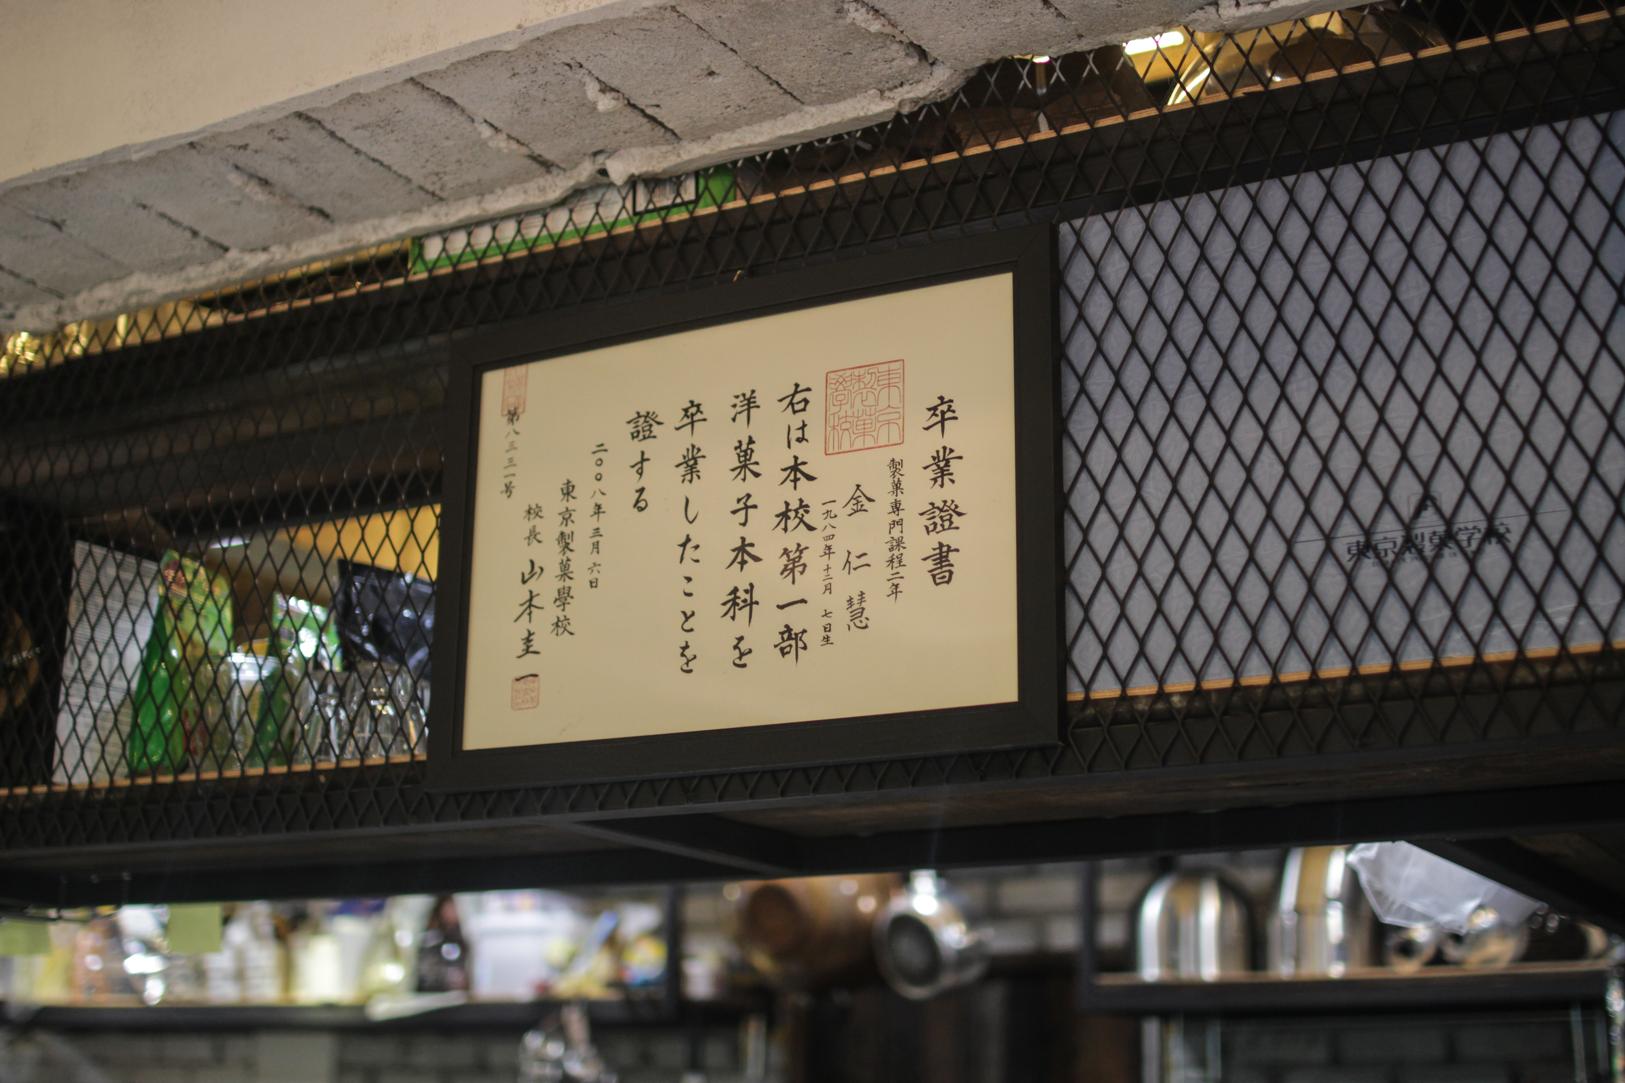 卒業證書
製菓専門課程二年
金仁慧
一九八四年十二月 七日生
右は本校第一部
洋菓子本科を
卒業したことを
證する
二〇〇八年三月六日
東京製菓學校
校長 山本圭一
第八三三一号
東京製菓學校
東京製菓学校